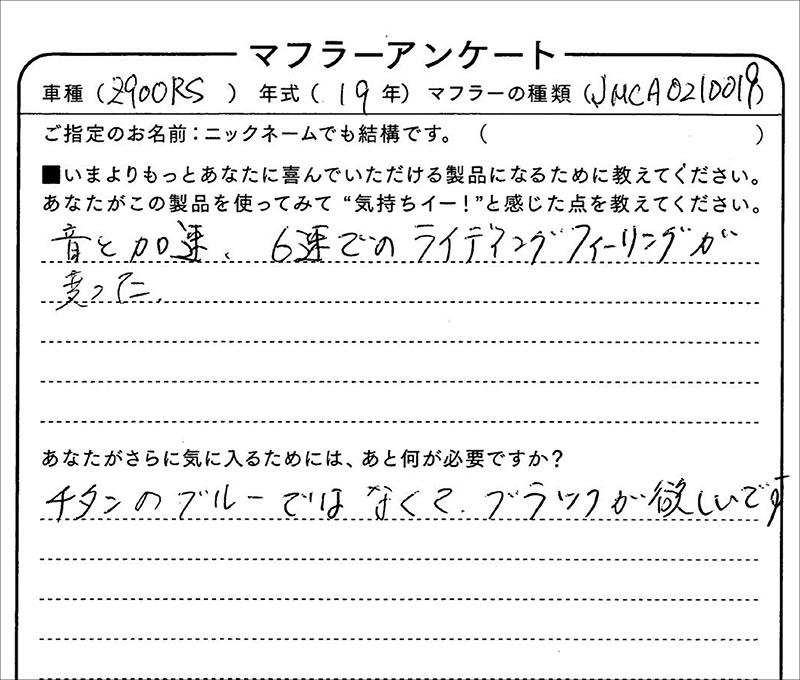 マフラーアンケート
車種（Z900RS）年式（19年）マフラーの種類（JMCA0210019）
ご指定のお名前：ニックネームでも結構です。（　）
■いまよりもっとあなたに喜んでいただける製品になるために教えてください。
あなたがこの製品を使ってみて“気持ちイー！”と感じた点を教えてください。
音と加速、6速でのライディングフィーリングが
変った。
あなたがさらに気に入るためには、あと何が必要ですか？
チタンのブルーではなくて、ブラックが欲しいです